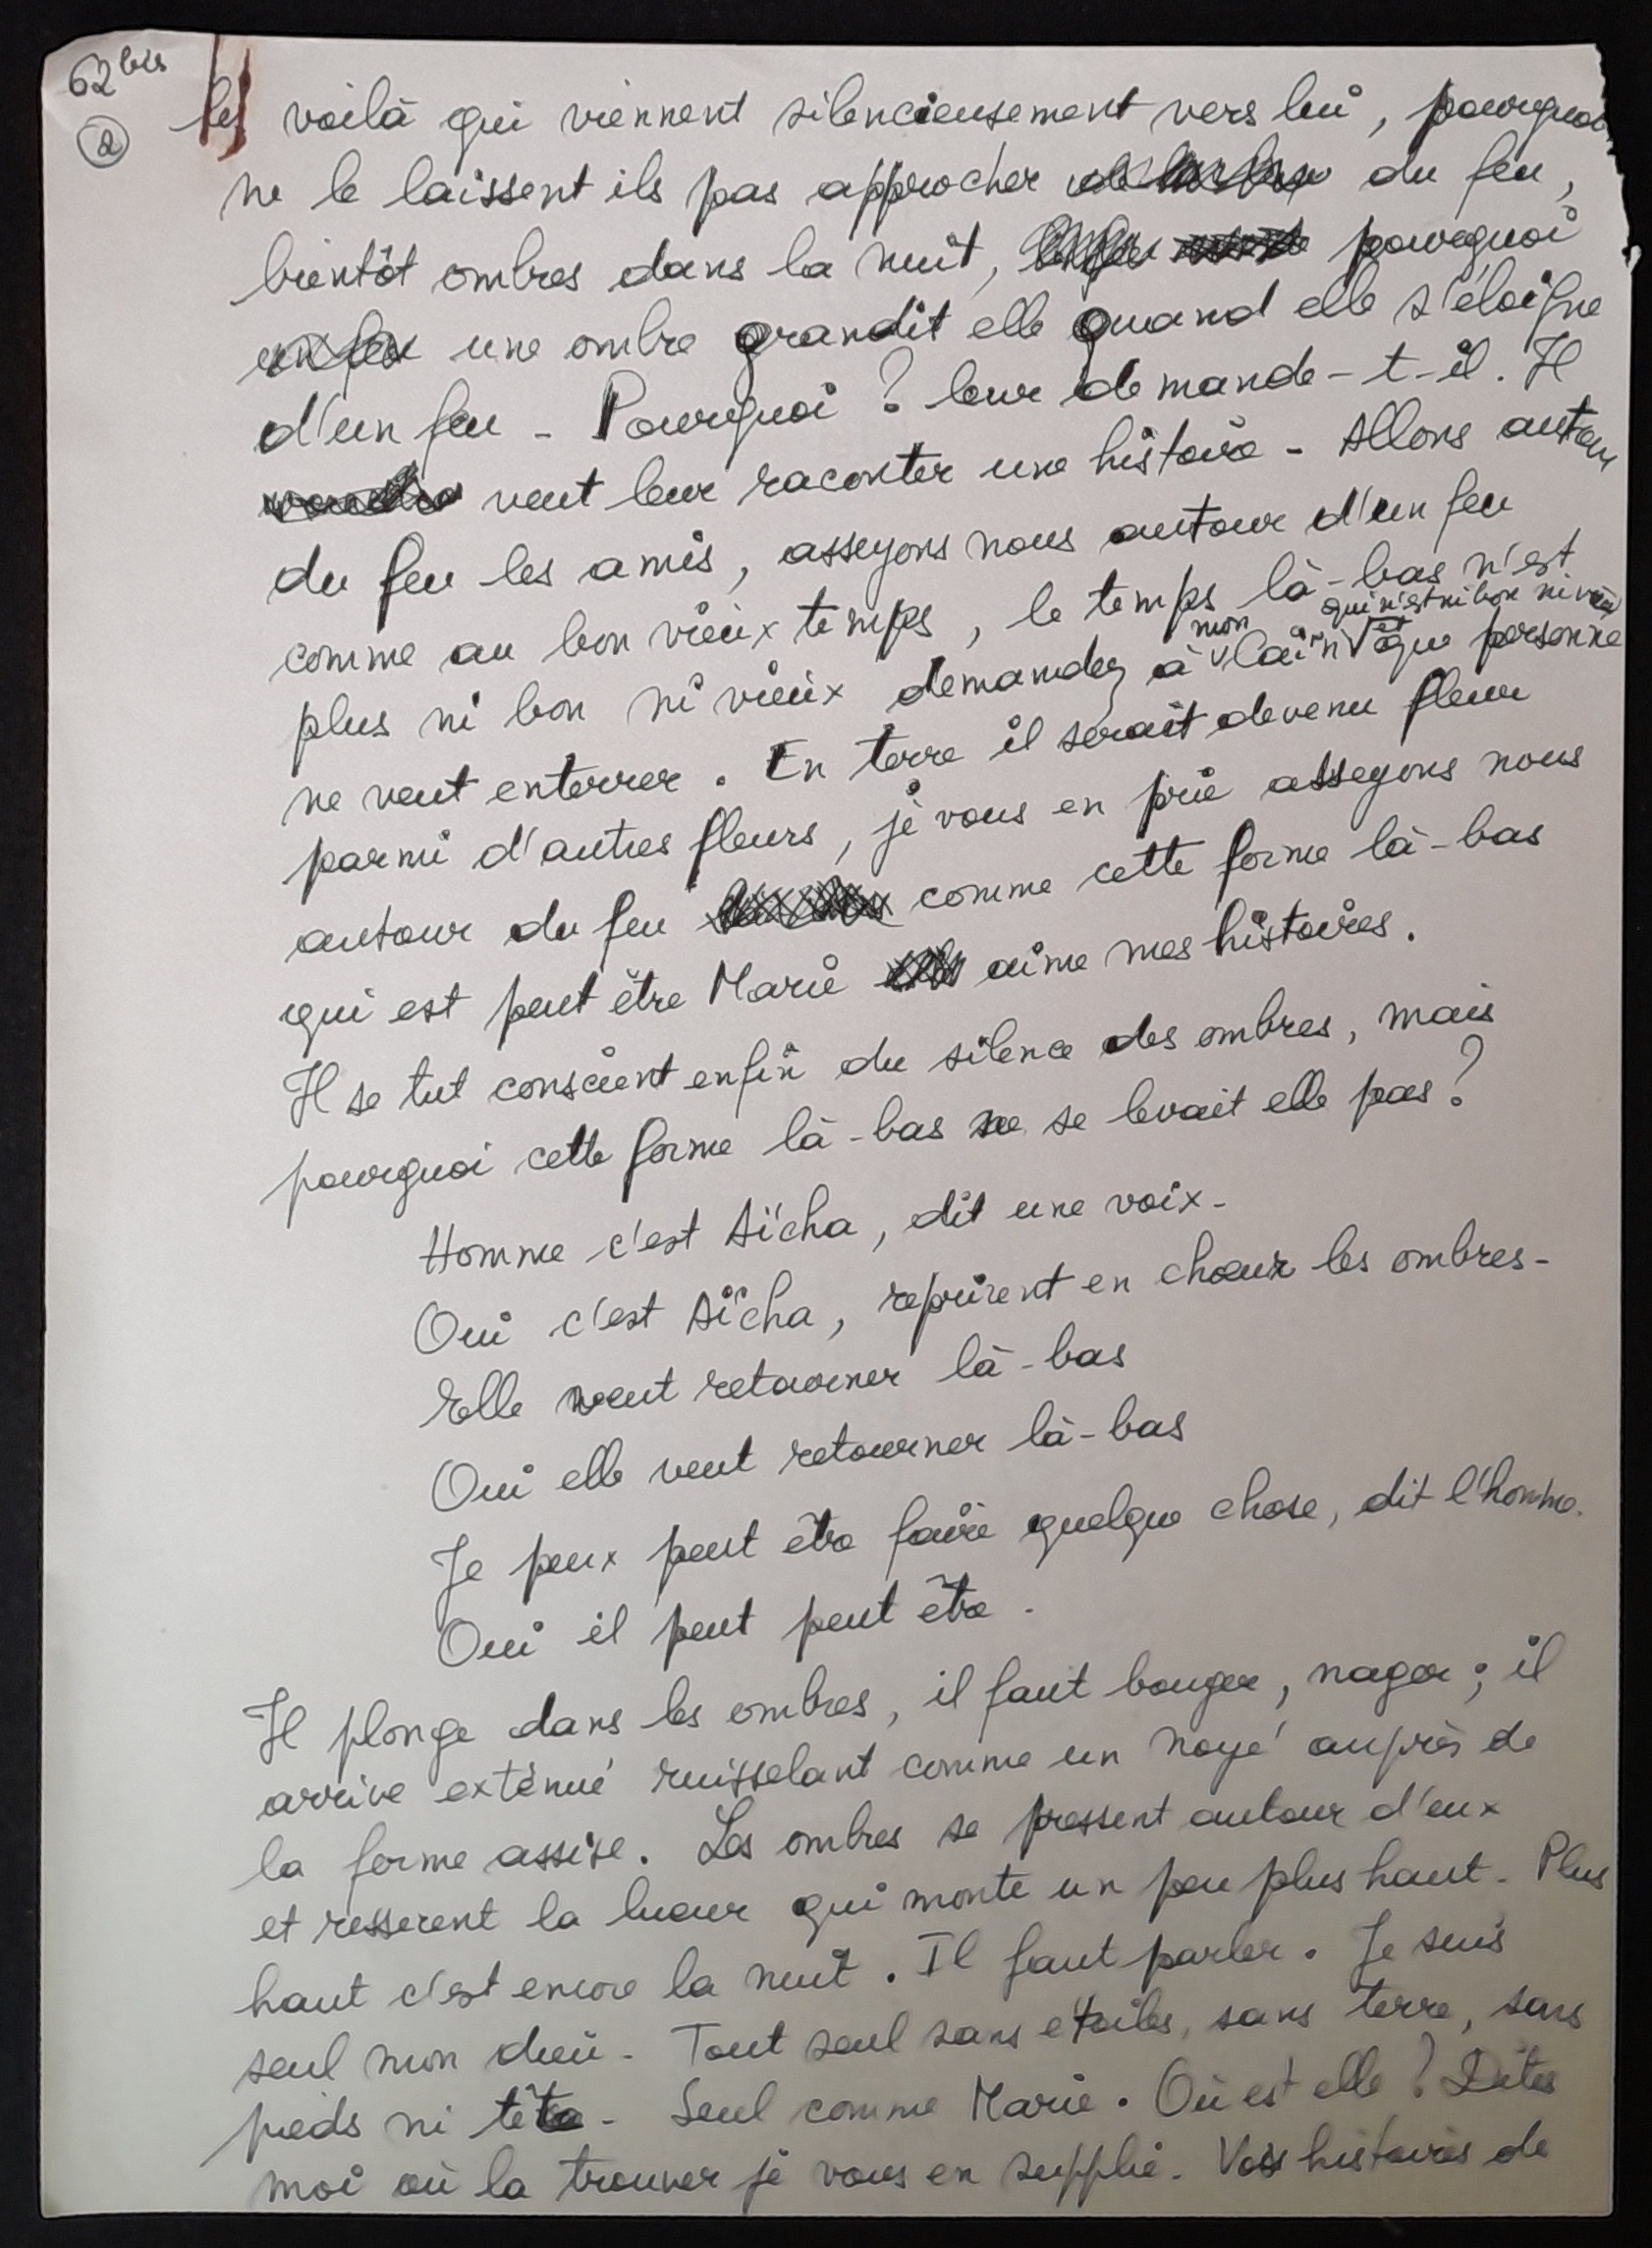 62 bis
2
les voilà qui viennent silencieusement vers lui, pourquoi
ne le laissent ils pas approcher du feu,
bientôt ombres dans la nuit, pourquoi
une ombre grandit elle quand elle s'éloigne
d'un feu - Pourquoi ? leur demande-t-il. Il
veut leur raconter une histoire - Allons autour
du feu les amis, asseyons nous autour d'un feu
comme au bon vieux temps, le temps là-bas n'est
qui n'est ni bon ni vieux
plus ni bon ni vieux demandez à mon Caïn et que personne
ne veut enterrer. En terre il serait devenu fleur
parmi d'autres fleurs, je vous en prie asseyons nous
autour du feu comme cette forme là-bas
qui est peut être Marie aime mes histoires.
Il se tut conscient enfin du silence des ombres, mais
pourquoi cette forme là-bas ne se levait elle pas ?
Homme c'est Aïcha, dit une voix -
Oui c'est Aïcha, reprirent en choeur les ombres -
Elle veut retourner là-bas
Oui elle veut retourner là-bas
Je peux peut être faire quelque chose, dit l'homme.
Oui il peut peut être -
Il plonge dans les ombres, il faut bouger, nager ; il
arrive exténué ruisselant comme un noyé auprès de
la forme assise. Les ombres se pressent autour d'eux
et resserent la lueur qui monte un peu plus haut - Plus
haut c'est encore la nuit. Il faut parler. Je suis
seul mon dieu - Tout seul sans etoiles, sans terre, sans
pieds ni tête - Seul comme Marie. Où est elle ? Dites
moi où la trouver je vous en supplie - Vos histoires de